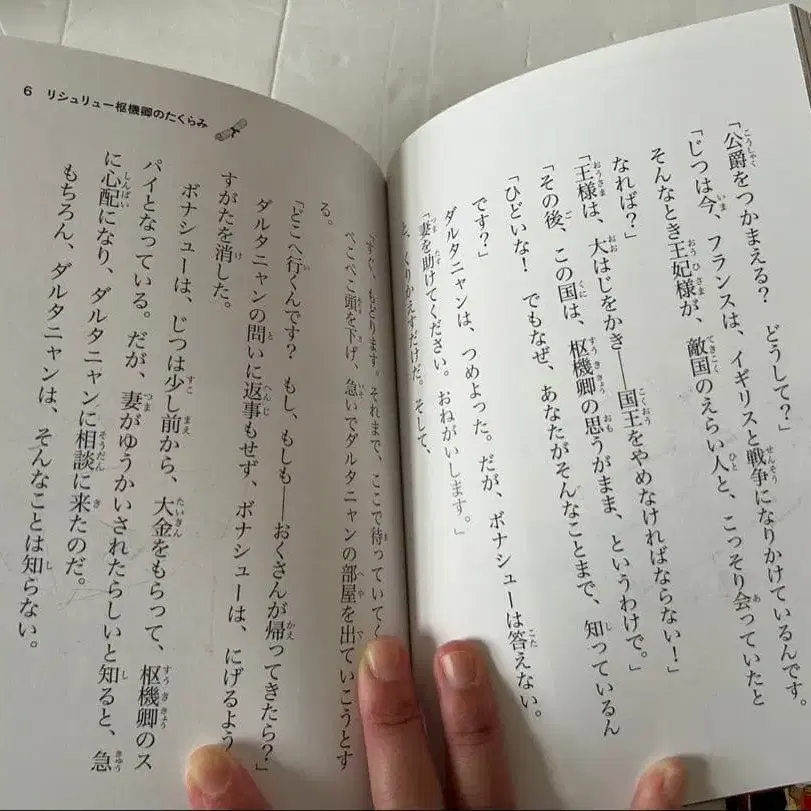 「公爵をつかまえる? どうして?」
「じつは今、フランスは、イギリスと戦争になりかけているんです。
そんなとき王妃様が、敵国のえらい人と、こっそり会っていたと
なれば?」
「王様は、大はじをかき――国王をやめなければならない!」
「その後、この国は、枢機卿の思うがまま、というわけで。」
「ひどいな! でもなぜ、あなたがそんなことまで、知っているん
です?」
ダルタニャンは、つめよった。だが、ボナシューは答えない。
「妻を助けてください。おねがいします。」
くりかえすだけだ。そして、
「すぐ、もどります。それまで、ここで待っていてく
ぺこぺこ頭を下げ、急いでダルタニャンの部屋を出ていこうとす
る。
「どこへ行くんです? もし、もしも――おくさんが帰ってきたら?」
ダルタニャンの問いに返事もせず、ボナシューは、にげるよう
すがたを消した。
ボナシューは、じつは少し前から、大金をもらって、枢機卿のス
パイとなっている。だが、妻がゆうかいされたらしいと知ると、急
に心配になり、ダルタニャンに相談に来たのだ。
もちろん、ダルタニャンは、そんなことは知らない。
6 リシュリュー枢機卿のたくらみ